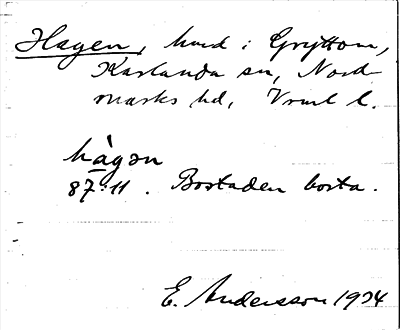 Hagen, hmd i Gryttom,
Karlanda sn, Nord-
marks hd, Vrml l.
hågən
87:11. Bostaden borta.
E. Andersson 1924